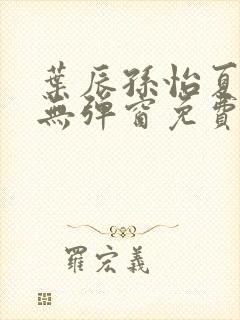 葉辰孫怡夏
無彈窗免費
羅宏義